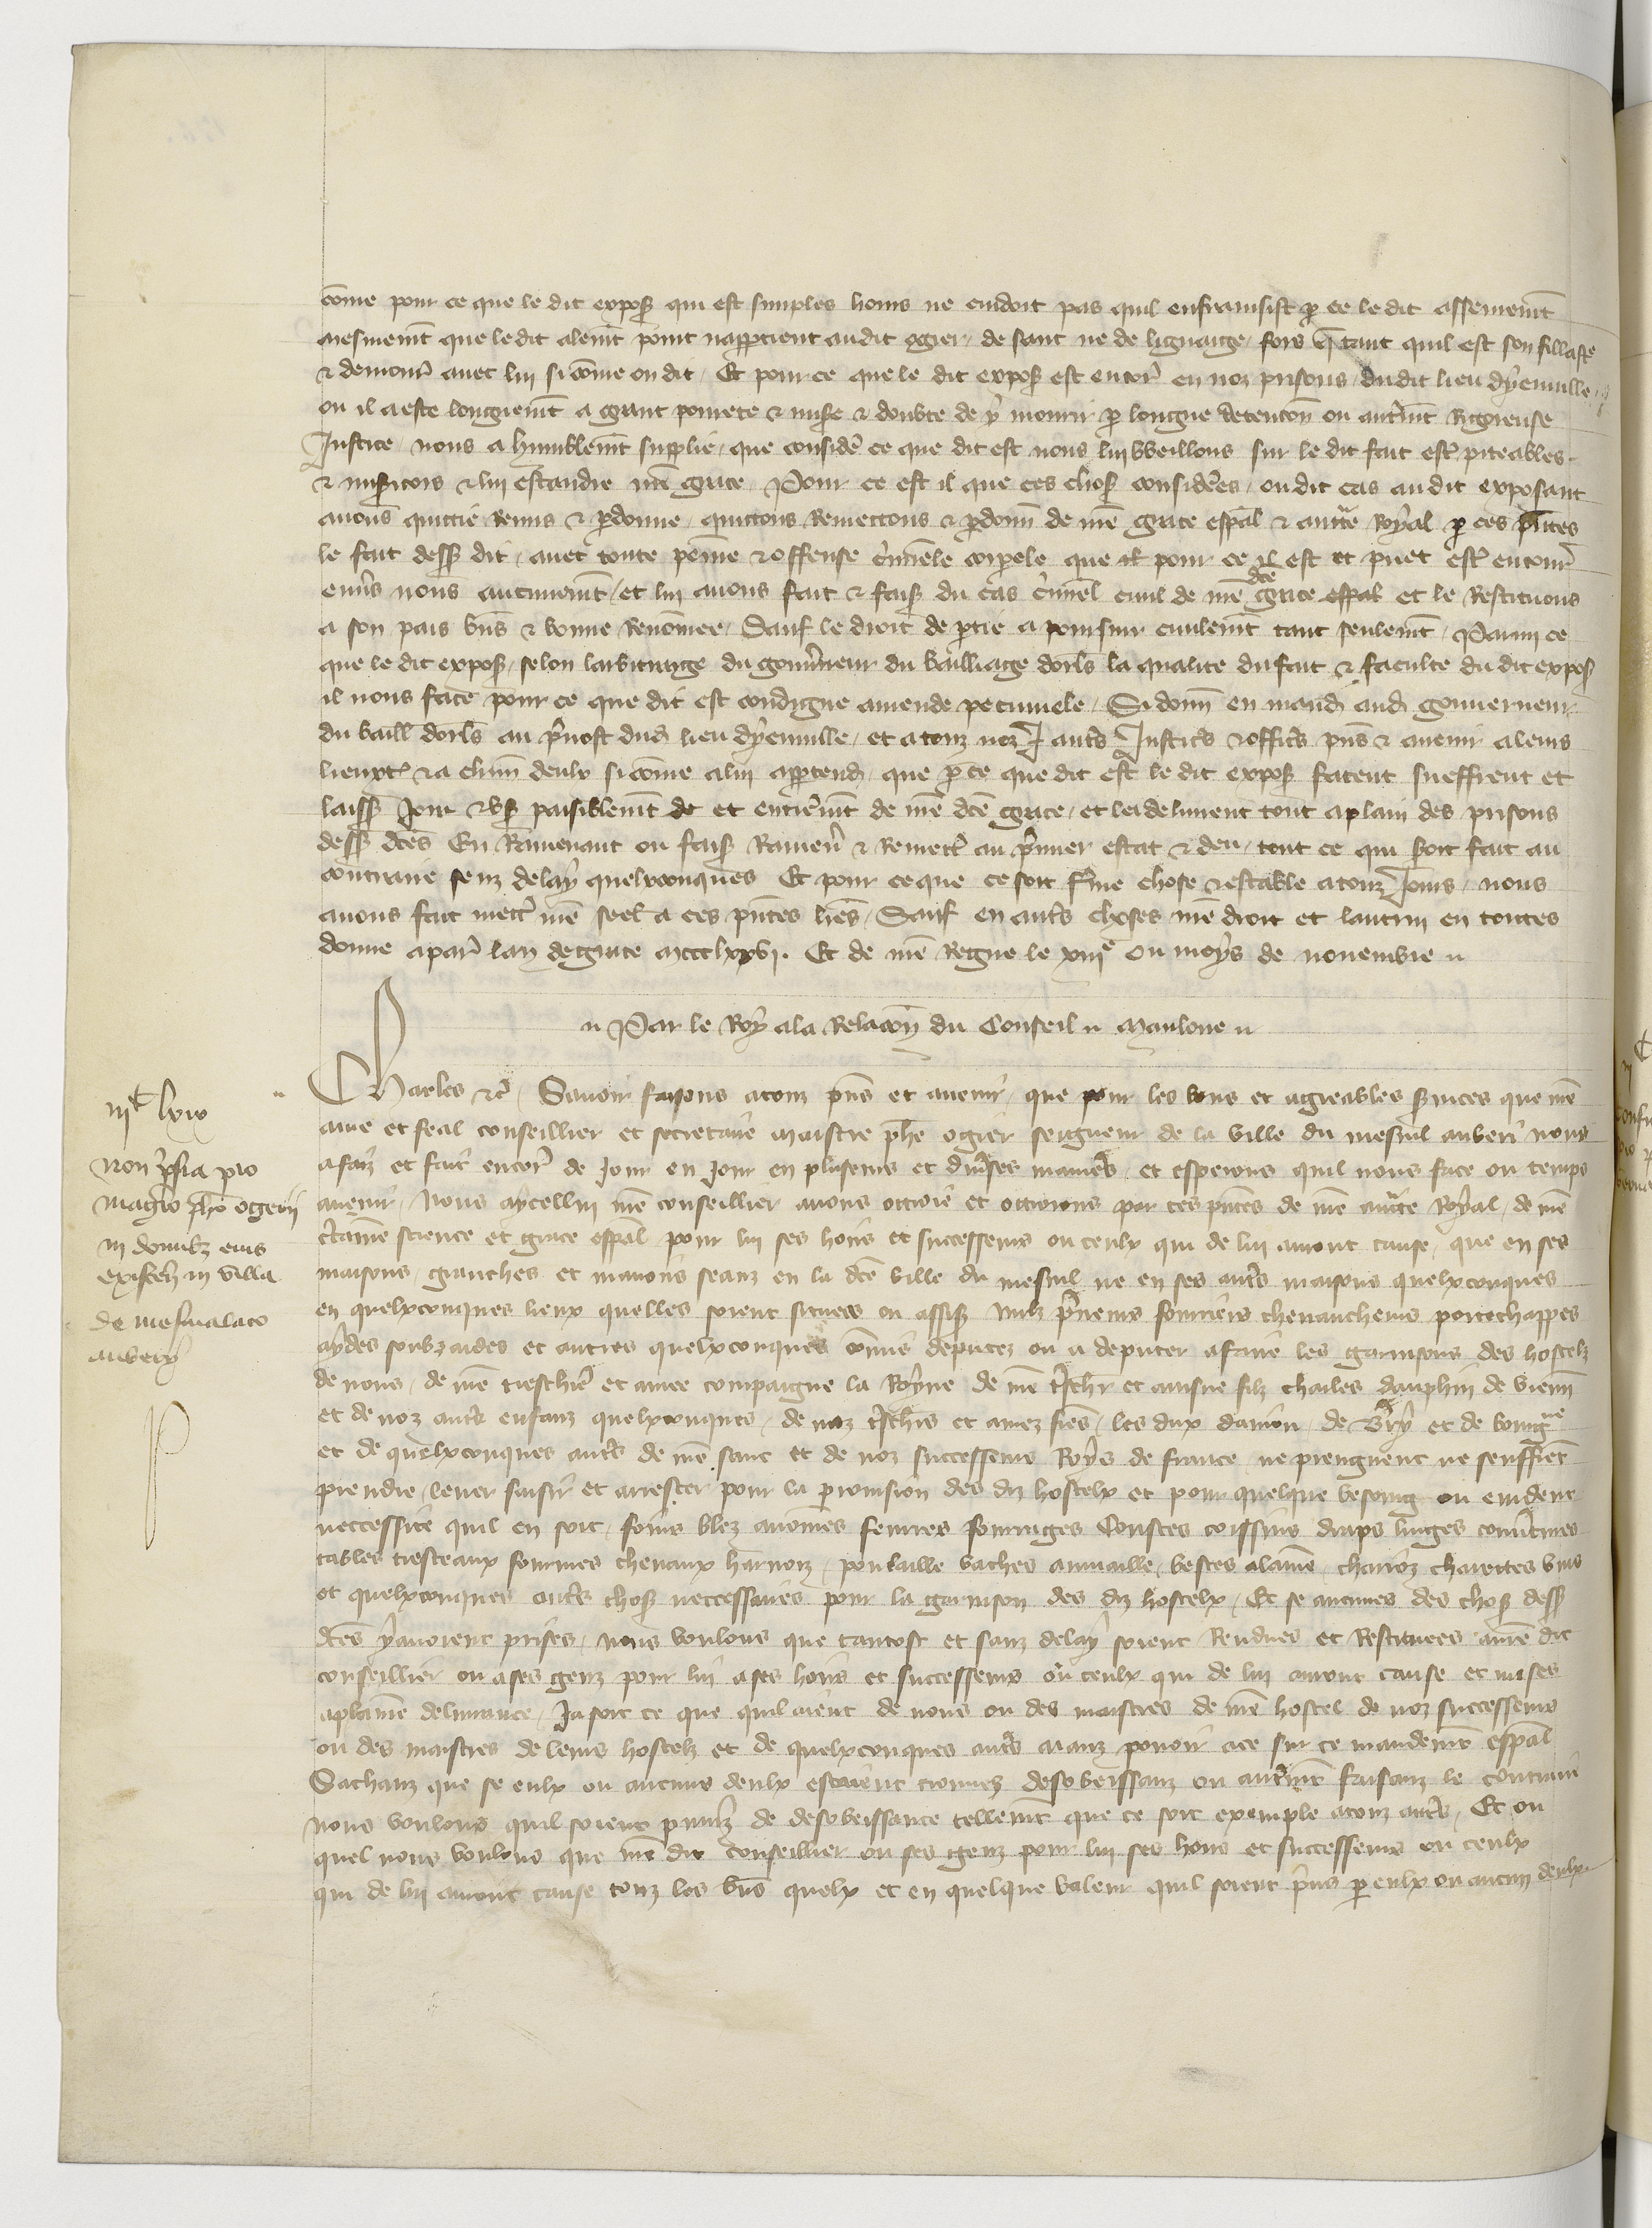 cōme pour ce que le dit expoſ qui est simples homs ne cuidoit pas quil enfrainsist p ce le dit asseuremēt
mesmemēt que ledit alemēt point nappartient audit ogier de sanc ne de lignaige fors q̄ tant quil est son fillastre
& demour̄ auec lui si cōme on dit Et pour ce que le dit expoſ est encor̄ en noz prisons dudit lieu dyenuille
ou il a este longuemēt a grant pourete & misē & doubte de y mourir p longue detencōn ou autremēt Rigoreuse
Justice nous a humblemēt supplie que considē ce que dit est nous lui vueillons sur le dit fait estr̄ piteables
& misericors & lui estandre nrē grace Pour ce est il que ces choſ considerēes ou dit cas au dit exposant
auons quittie Remis & pdonne quittons Remettons & pdonn̄ de nrē grace esp̄al & auctē Royal p ces pn̄tes
le fait desſ dit auec toute peine & offense crimīele corpele que il pour ce il est et puet estr̄ encour̄
enurs nous aucunemēt et lui auons fait & faiſ du cas crimīel ciuil de nrē dcē grace et le Restituons
a son pais biēs & bonne Renōmee Sauf le droit de ptie a poursuir ciuilemēt tant seulemēt Parmi ce
que le dit expoſ selon larbitrage du gouūneur du bailliage dorlēs la qualite du fait & faculte du dit expoſ
il nous face pour ce que dit est condigne amende pecuniele Si donn̄ en mand̄ aud̄ gouuerneur
du baill dorlēs au pr̄uost dud̄ lieu dyenuille et a touz noz autrēs Justicrēs & officrēs pn̄s & auenir a leurs
lieuxt̄ & a chūn deulx si cōme a lui appartend̄ que p ce que dit est le dit expoſ facent sueffrent et
laissſ Joir & vſ paisiblemēt et entieremēt de nrē dcē grace et le deliurent tout a plain des prisons
desſ dcēs En Ramenant ou faiſ Ramener̄ & Remectr̄ au pr̄mier estat & deu tout ce qui soit fait au
contraire senz delay quelxconques Et pour ceque ce soit ferme chose & estable a touz Jours nous
auons fait mectr̄ nrē seel a ces pn̄tes lrēs Sauf en autrēs choses nrē droit et lautrui en toutes
donne a par̄ lan de grace mccclxxvi. Et de nrē Regne le xiii<sup>e</sup> ou moys de nouembre
Par le Roy a la Relacōn du Conseil Mauloue
Charles &c̄ Sauoir faisons a touz pn̄s et auenir que pour les bons et agreables seruices que nrē
ame et feal conseillier et secretaire maistre phē ogier seigneur de la ville du mesnil aubery nous
a faiz et fait encor̄ de Jour en Jour en pluseurs et diūses manierēs et esperons quil nous face ou temps
auenir Nous a ycellui nrē conseillier auons ottroie et ottroions par ces pn̄tes de nrē auctē Royal de nrē
certaine science et grace esp̄al pour lui ses hoirs et successeurs ou ceulx qui de lui auront cause que en ses
maisons granches et manoirs seanz en la dcē ville du mesnil ne en ses autrēs maisons quelxconques
en quelxconques lieux quelles soient situees ou assiſ nulz pr̄neurs fourriers cheuaucheurs portechappes
aydes soubzaides et autres quelxconques cōmis deputez ou a deputer a faire les garnisons des hostelz
de nous de nrē treschiere et amee compaigne la Royne de nrē trēschr̄ et ainsne filz charles dauphin de vienn̄
et de noz autrēs enfanz quelxconques de noz trēschrs et amez frerēs les dux daniou de Brry et de bourg<sup>ne</sup>
et de quelxconques autrēs de nrē sanc et de noz successeurs Roys de france ne prengnent ne seuffrent
prendre leuer saisir et arrester pour la prouision des diz hostelx et pour quelque besoing ou euident
neccessite quil en soit foins blez auoines feurres fourrages Coustes coissins draps linges couūtures
tables tresteaux fourmes cheuaux harnoiz poulaille vaches aumaille bestes a laine charioz charettes vins
et quelxconques autrēs choſ neccessaires pour la garnison des diz hostelx Et se aucunes des choſ desſ
dcēs y auoient prises nous voulons que tantost et sanz delay soient Rendues et Restituees a nrē dit
conseillier ou a ses genz pour lui a ses hoirs et successeurs ou ceulx qui de lui auront cause et mises
a plaine deliurance Ja soit ce que quil aient de nous ou des maistres de nrē hostel de noz successeurs
ou des maistres de leurs hostelz et de quelxconques autrēs aianz pouoir a ce sur ce mandemēt esp̄al
Sachanz que se eulx ou aucuns deulx estoient trouuez desobeissanz ou autremēt faisanz le contraire
nous voulons quil soient puniz de desobeissance tellemēt que ce soit exemple a touz autrēs Et ou
quel nous voulons que nrē dit conseillier ou ses genz pour lui ses hoirs et successeurs ou ceulx
qui de lui auront cause touz les biēs quelx et en quelque valeur quil soient prins p eulx ou aucun deulx
iii<sup>c</sup> lxix
non pr̄sia pro
magrō pho ogerii
in domibz eius
existen̄ in villa
de mesnilato
auberÿ